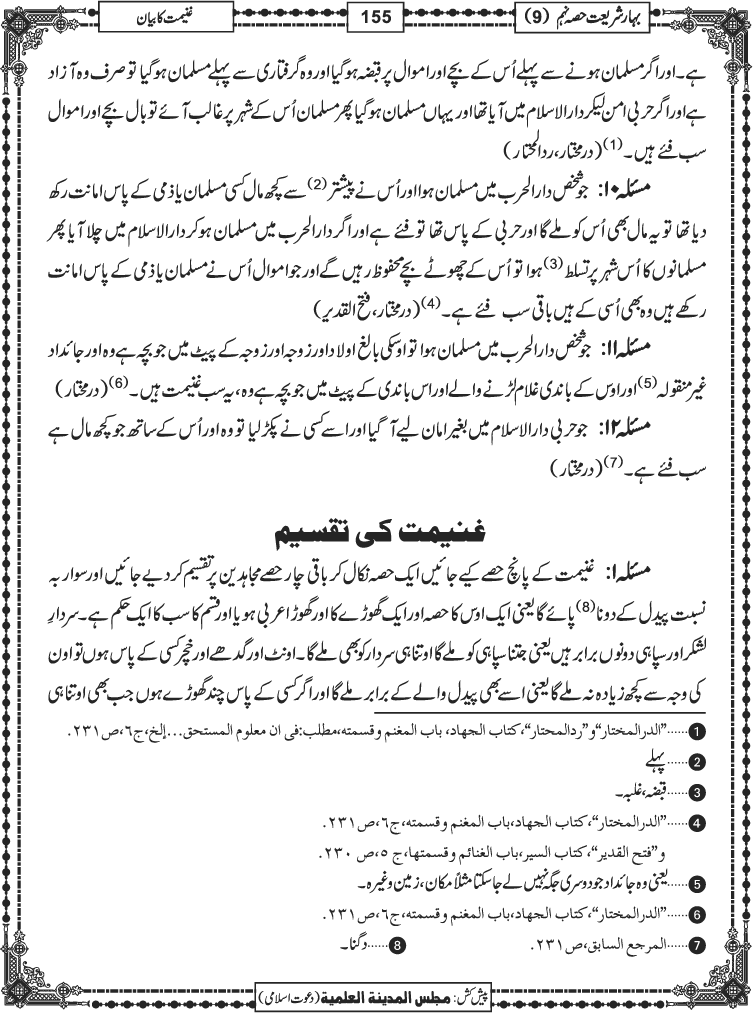 بہارِ شریعت حصہ نہم (9)
155
غنیمت کا بیان
ہے۔ اور اگر مسلمان ہونے سے پہلے اُس کے بچے اور اموال پر قبضہ ہوگیا اور وہ گرفتاری سے پہلے مسلمان ہوگیا تو صرف وہ آزاد
ہے اور اگر حربی امن لیکر دارالاسلام میں آیا تھا اور یہاں مسلمان ہوگیا پھر مسلمان اُس کے شہر پر غالب آئے تو بال بچے اور اموال
سب فئے ہیں۔(1) (درمختار، ردالمحتار)
مسئلہ ۱۰: جو شخص دارالحرب میں مسلمان ہوا اور اُس نے پیشتر(2) سے کچھ مال کسی مسلمان یا ذمی کے پاس امانت رکھ
دیا تھا تو یہ مال بھی اُس کو ملے گا اور حربی کے پاس تھا تو فئے ہے اور اگر دارالحرب میں مسلمان ہوکر دارالاسلام میں چلا آیا پھر
مسلمانوں کا اُس شہر پر تسلط(3) ہوا تو اُس کے چھوٹے بچے محفوظ رہیں گے اور جو اموال اُس نے مسلمان یا ذمی کے پاس امانت
رکھے ہیں وہ بھی اُسی کے ہیں باقی سب فئے ہے۔(4) (درمختار، فتح القدیر)
مسئلہ ۱۱: جو شخص دارالحرب میں مسلمان ہوا تو اوسکی بالغ اولاد اور زوجہ اور زوجہ کے پیٹ میں جو بچہ ہے وہ اور جائداد
غیر منقولہ(5) اور اوس کے باندی غلام لڑنے والے اور اس باندی کے پیٹ میں جو بچہ ہے وہ، یہ سب غنیمت ہیں۔(6) (درمختار)
مسئلہ ۱۲: جو حربی دارالاسلام میں بغیر امان لیے آگیا اور اسے کسی نے پکڑ لیا تو وہ اور اُس کے ساتھ جو کچھ مال ہے
سب فئے ہے۔(7) (درمختار)
غنیمت کی تقسیم
مسئلہ ۱: غنیمت کے پانچ حصے کیے جائیں ایک حصہ نکال کر باقی چار حصے مجاہدین پر تقسیم کر دیے جائیں اور سوار بہ
نسبت پیدل کے دونا(8) پائے گا یعنی ایک اوس کا حصہ اور ایک گھوڑے کا اور گھوڑا عربی ہو یا اور قسم کا سب کا ایک حکم ہے۔ سردارِ
لشکر اور سپاہی دونوں برابر ہیں یعنی جتنا سپاہی کو ملے گا اوتنا ہی سردار کو بھی ملے گا۔ اونٹ اور گدھے اور خچر کسی کے پاس ہوں تو اون
کی وجہ سے کچھ زیادہ نہ ملے گا یعنی اسے بھی پیدل والے کے برابر ملے گا اور اگر کسی کے پاس چند گھوڑے ہوں جب بھی اوتنا ہی
1......"الدرالمختار" و "ردالمحتار"، کتاب الجھاد، باب المغنم وقسمتہ، مطلب: فی ان معلوم المستحق...إلخ، ج٦، ص٢٣١.
2......پہلے
3......قبضہ، غلبہ۔
4......"الدرالمختار"، کتاب الجھاد، باب المغنم وقسمتہ، ج٦، ص٢٣١.
و"فتح القدیر"، کتاب السیر، باب الغنائم وقسمتھا، ج ٥، ص ٢٣٠.
5......یعنی وہ جائداد جو دوسری جگہ نہیں لے جا سکتا مثلاً مکان، زمین وغیرہ۔
6......"الدرالمختار"، کتاب الجھاد، باب المغنم وقسمتہ، ج٦، ص٢٣١.
7......المرجع السابق، ص٢٣١.
8......دگنا۔
پیش کش: مجلس المدینۃ العلمیۃ (دعوت اسلامی)